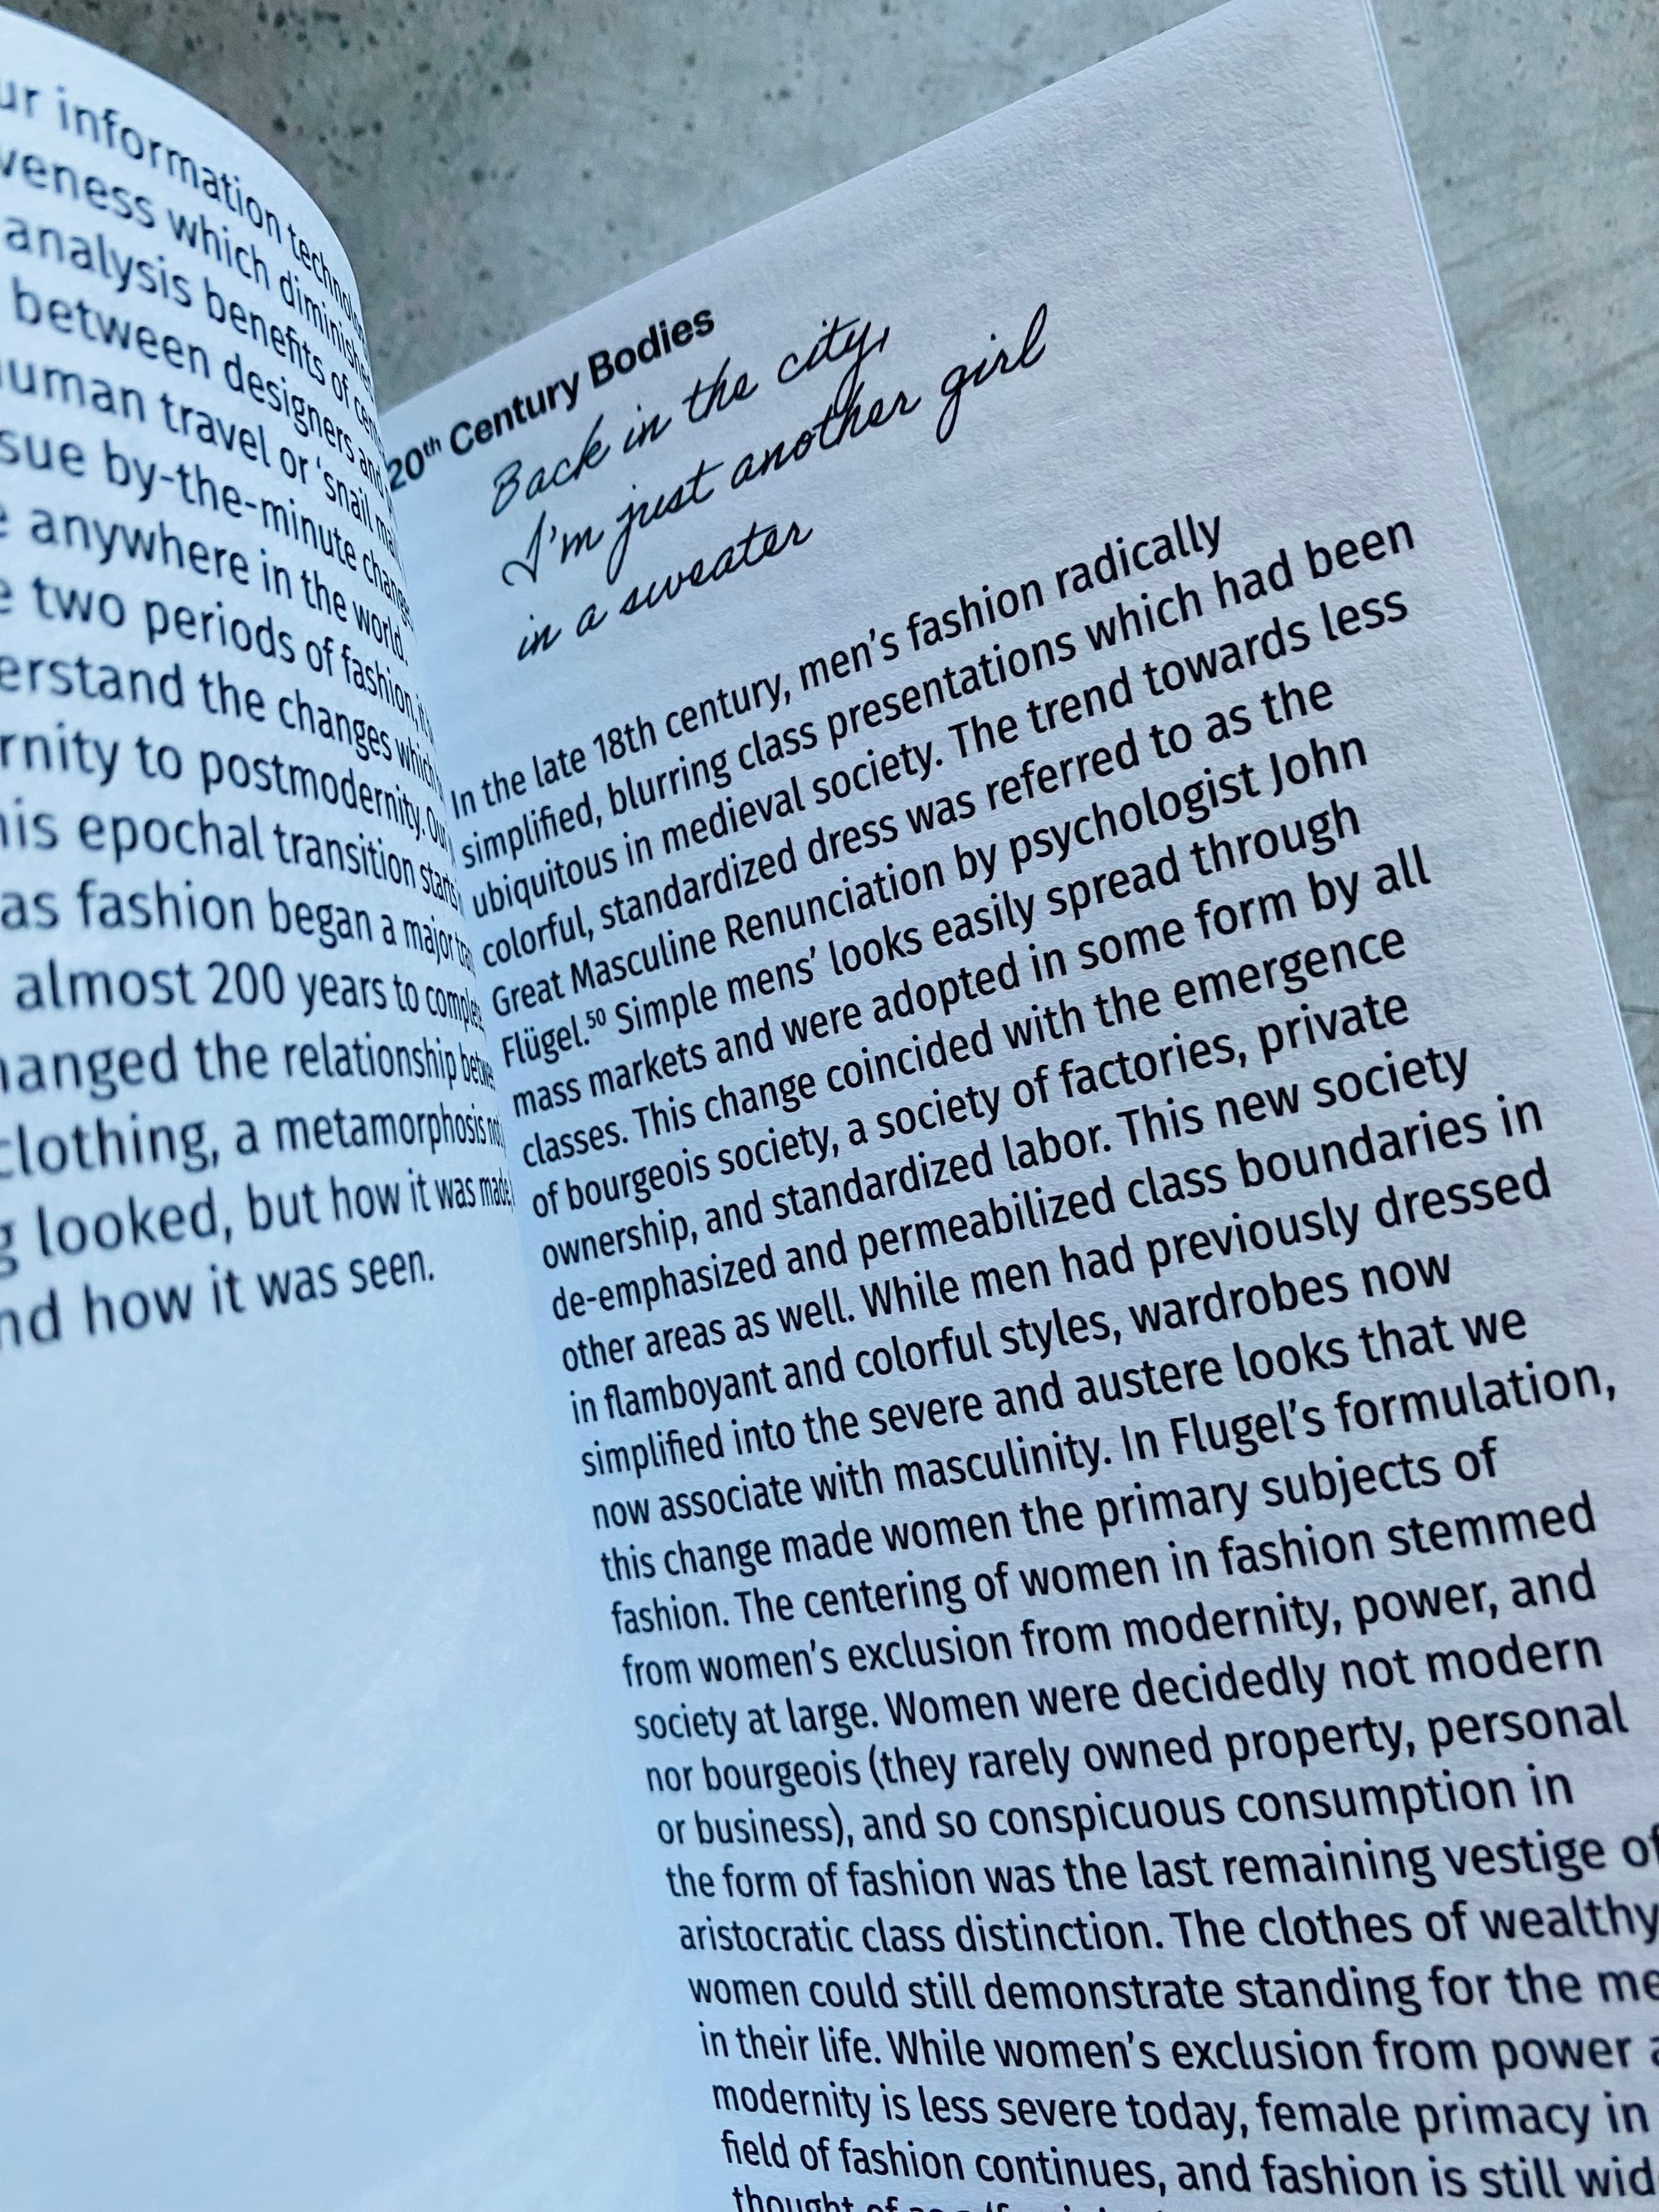 ur information technolo
veness which diminishe
analysis benefits of cent
between designers and
uman travel or ‘snail mai
sue by-the-minute change
e anywhere in the world.
e two periods of fashion, it
erstand the changes which
rnity to postmodernity. Our
his epochal transition starts
as fashion began a major tra
almost 200 years to complete
hanged the relationship betwe
clothing, a metamorphosis not
g looked, but how it was made,
nd how it was seen.
20th Century Bodies
Back in the city,
I'm just another girl
in a sweater
In the late 18th century, men’s fashion radically
simplified, blurring class presentations which had been
ubiquitous in medieval society. The trend towards less
colorful, standardized dress was referred to as the
Great Masculine Renunciation by psychologist John
Flügel.50 Simple mens’ looks easily spread through
mass markets and were adopted in some form by all
classes. This change coincided with the emergence
of bourgeois society, a society of factories, private
ownership, and standardized labor. This new society
de-emphasized and permeabilized class boundaries in
other areas as well. While men had previously dressed
in flamboyant and colorful styles, wardrobes now
simplified into the severe and austere looks that we
now associate with masculinity. In Flugel’s formulation,
this change made women the primary subjects of
fashion. The centering of women in fashion stemmed
from women’s exclusion from modernity, power, and
society at large. Women were decidedly not modern
nor bourgeois (they rarely owned property, personal
or business), and so conspicuous consumption in
the form of fashion was the last remaining vestige of
aristocratic class distinction. The clothes of wealthy
women could still demonstrate standing for the me
in their life. While women’s exclusion from power a
modernity is less severe today, female primacy in
field of fashion continues, and fashion is still wid
thought of as a